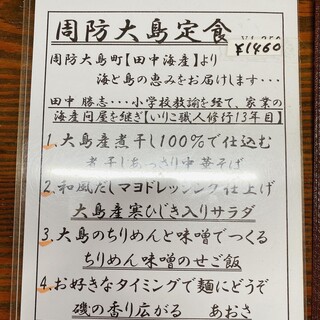 周防大島定食
¥1460
周防大島町【田中海産】より
海と島の恵みをお届けします・・・
田中 勝志・・・小学校教諭を経て、家業の
海産問屋を継ぎ【いりこ職人修行13年目】
1.大島産煮干し100%で仕込む
煮干しあっさり中華そば
2.和風だしマヨドレッシング仕上げ
大島産寒ひじき入りサラダ
3.大島のちりめんと味噌でつくる
ちりめん味噌のせご飯
4.お好きなタイミングで麺にどうぞ
磯の香り広がる あおさ